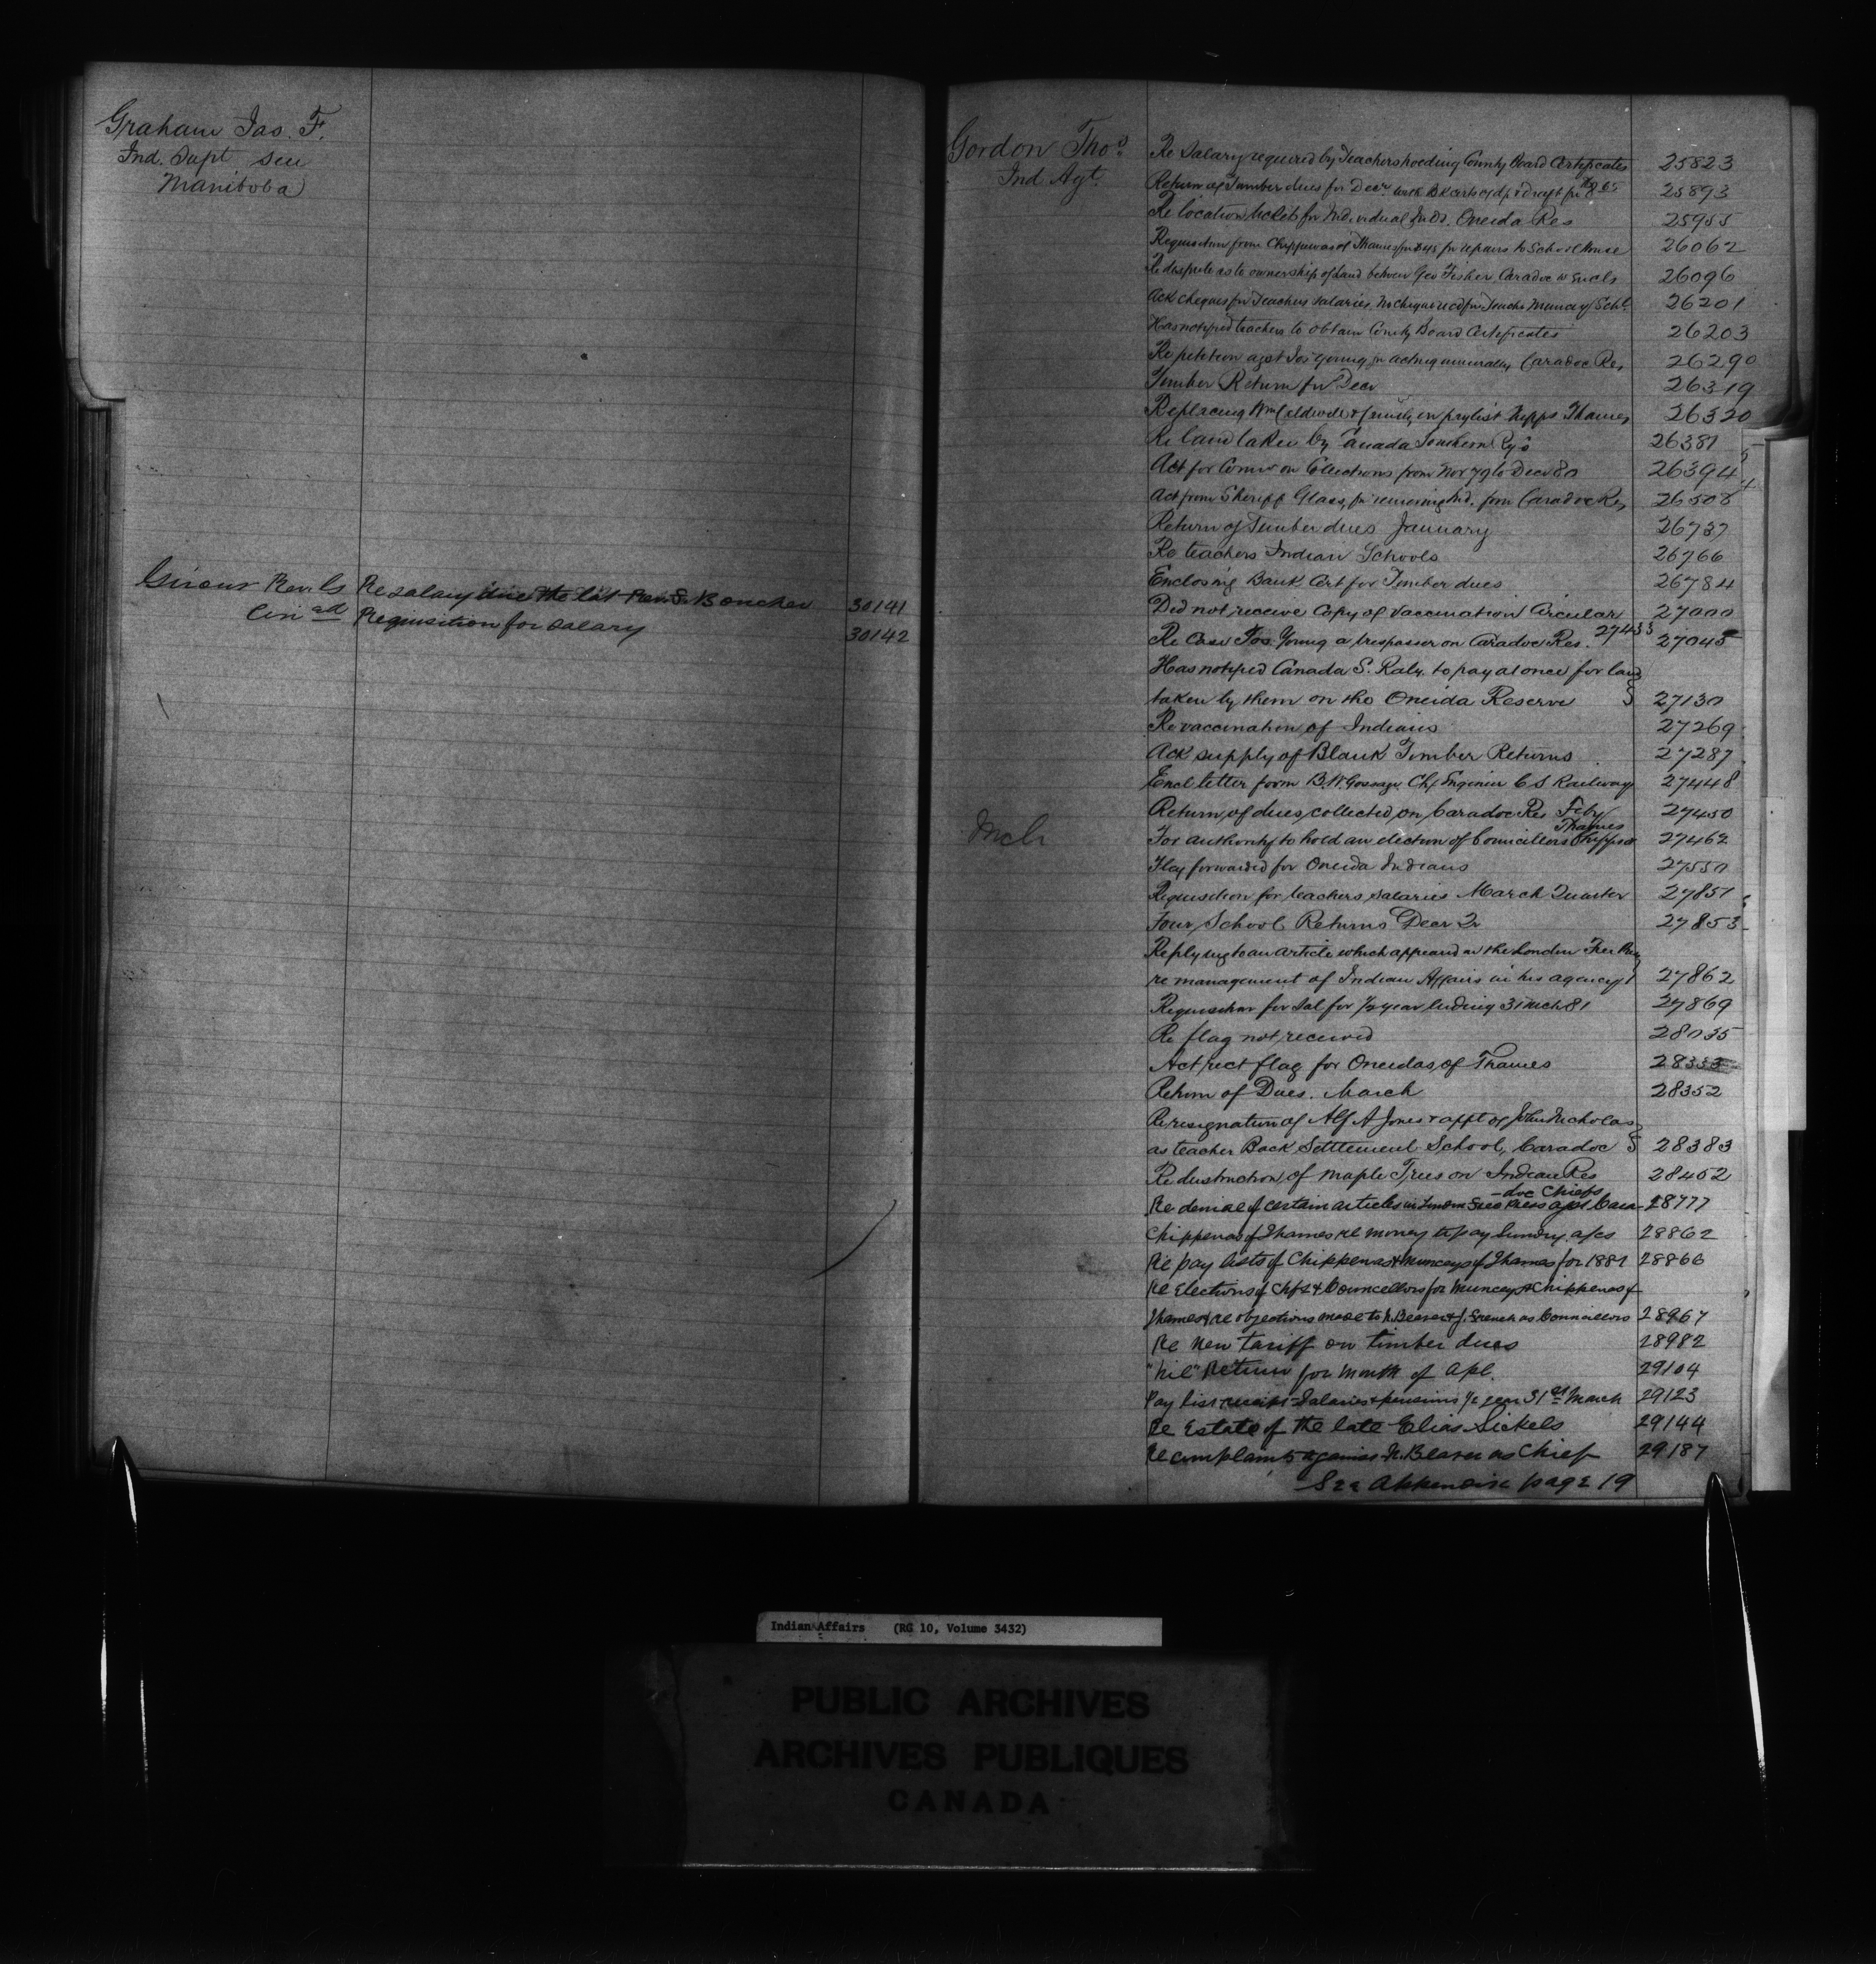 Graham Jas. F.
Ind. Supt
Manitoba
Re salary due the late Rev. S. Boucher 30141
Requisition for salary 30142
Gordon Thos
Ind Agt.
Re Salary required by Teachers holding County Board Certificates 25823
Return of Timber dues for Decr 25893
Re location tickets for Individual Inds. Oneida Res 25955
Requisition from Chippewas of Thames for repairs to School House 26062
Re dispute as to ownership of land between Geo Fisher, Caradoc 26096
Ack cheques for Teachers salaries. No cheque recd for Teacher Muncey Schl. 26201
Has notified teachers to obtain County Board Certificates 26203
Re petition agst Jos Young for acting Caradoc Res 26290
Timber Return for Decr 26319
Replacing Wm & family on paylist Chipps Thames 26320
Re land taken by Canada Southern Ry 26381
Act for Commn on Collections from Nov 79 to Decr 80 26394
Act from Sheriff Glass, for removing Ind. from Caradoc Res 26508
Return of Timber dues January 26737
Re teachers Indian Schools 26766
Enclosing Bank Cert for Timber dues 26784
Did not receive Copy of Vaccination Circular 27000
Re Case Jos Young a trespasser on Caradoc Res. 27433 27045
Has notified Canada S. Raly. to pay at once for land
taken by them on the Oneida Reserve 27130
Re vaccination of Indians 27269
Ack supply of Blank Timber Returns 27287
Encl letter from B.W. Gossage Chf Engineer C S Railway 27448
Return of dues collected on Caradoc Res Feby 27450
Mch
For authority to hold an election of Councillors Chipps o Thames 27462
Flag forwarded for Oneida Indians 27550
Requisition for teachers salaries March Quarter 27851
Four School Returns Decr Qr 27853
Replying to an article which appeared in the London Free Press
re management of Indian Affairs in his agency 27862
Requisition for Sal for 1/2 year ending 31 Mch 81 27869
Re flag not received 28035
Act rect flag for Oneidas of Thames 28353
Return of Dues. March 28352
Re resignation of Alf A Jones & appt of John Nicholas
as teacher Back Settlement School, Caradoc 28383
Re destruction of Maple Trees on Indian Res 28452
Re denial of certain articles in London Free Press agst Cara-doc Chiefs 28777
Chippewas of Thames re money to pay sundry a/cs 28862
Re pay lists of Chippewas & Munceys of Thames for 1881 28866
Re Elections of Chfs & Councellors for Munceys & Chippewas of
Thames & re objections made to N. Beaver & J. French as Councillors 28967
Re New tariff on timber dues 28982
"Nil" Return for month of Apl. 29104
Pay list Salaries & pensions 1/2 year 31st March 29123
Re Estate of the late Elias Sickels 29144
Re complaints against N. Beaver as Chief 29187
See Appendix page 19
Indian Affairs (RG 10, Volume 3432)
PUBLIC ARCHIVES
ARCHIVES PUBLIQUES
CANADA